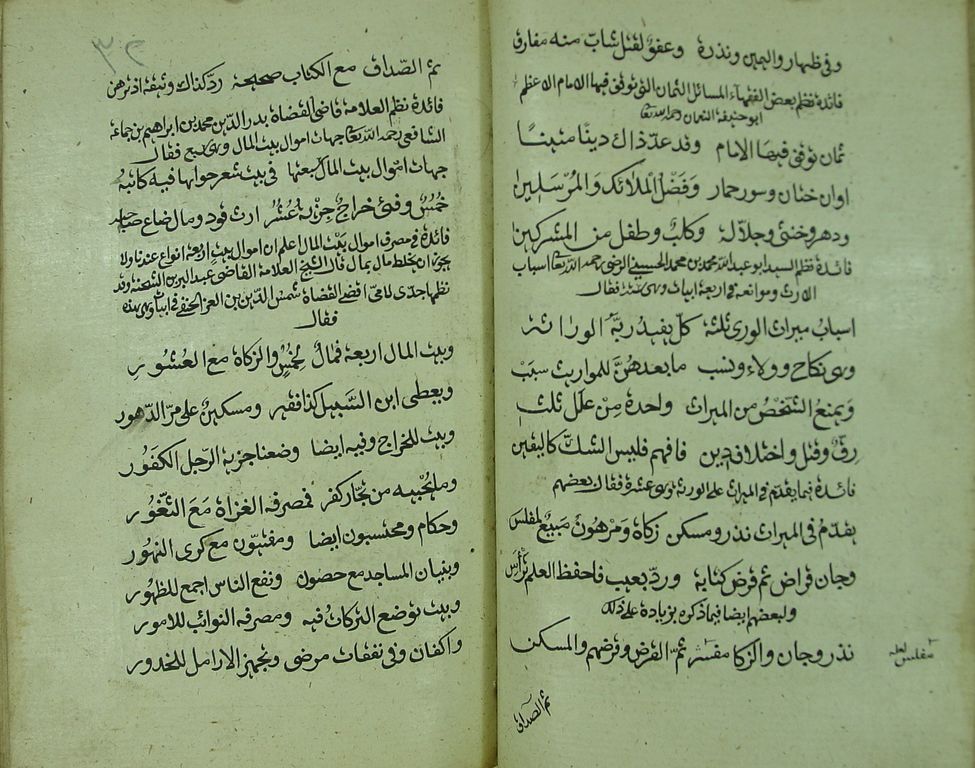 وفي ظهار واليمين ونذره وعفو لقتل شاب منه مفارق
فائدة نظم بعض الفقهاء المسائل الثمان التي توقف فيها الامام الاعظم
ابو حنيفة النعمان رحمه الله تعالى
ثمان توقف فيها الامام وقد عد ذاك دينا متينا
اوان ختان وسور حمار وفضل الملائك والمرسلين
ودهر وخنثى وجلالة وكلب وطفل من المشركين
فائدة نظم السيد ابو عبد الله محمد بن محمد الحسيني الرضى رحمه الله تعالى اسباب
الارث وموانعه في اربعة ابيات وهي هذه فقال
اسباب ميراث الورى ثلثة كل يفيد ربه الوراثه
وهي نكاح وولاء ونسب ما بعدهن للمواريث سبب
ويمنع الشخص من الميراث واحدة من علل ثلث
رق وقتل واختلاف دين فافهم فليس الشك كاليقين
فائدة فيما يقدم في الميراث على الورثة وهي عشرة فقال بعضهم
يقدم في الميراث نذر ومسكن زكاة ومرهون مبيع لمفلس
وجان قراض ثم قرض كتابة ورد بعيب فاحفظ العلم
ولبعضهم ايضا فيما ذكره بزيادة على ذلك
نذر وجان والزكا مفسر ثم القرض وقرضهم والمسكن
مفلس لعله
ثم الصداق
ثم الصداق مع الكتاب صحيحة رد كذاك وثيقة اذ ترهن
فائدة نظم العلامة قاضي القضاة بدر الدين محمد بن ابراهيم بن جماعة
الشافعي رحمه الله تعالى جهات اموال بيت المال وهي سبع فقال
جهات اموال بيت المال سبعتها في بيت شعر حواها فيه كاتبه
خمس وفئ خراج جزية عشر ارث فرد ومال ضاع صاحبه
فائدة في مصرف اموال بيت المال اعلم ان اموال بيت اربعة انواع عندنا ولا
يجوز ان يخلط مال بمال قال الشيخ العلامة القاضي عبد البر بن الشحنة وقد
نظمها جدى لامى اقضى القضاة شمس الدين بن العز الحنفي في ابيات وهي هذه
فقال
وبيت المال اربعة فمال لخمس والزكاة مع العشور
ويعطى ابن السبيل كذا فقير ومسكين على مر الدهور
وبيت للخراج وفيه ايضا وضعنا جزية الرجل الكفور
وما نجبيه من تجار كفر فمصرفه الغزاة مع الثغور
وحكام ومحتسبون ايضا ومفتيون مع كرى النهور
وبنيان المساجد مع حصون ونفع الناس اجمع للظهور
وبيت توضع التركات فيه ومصرفه النوائب للامور
واكفان وفي نفقات مرضى وتجهيز الارامل للخدور